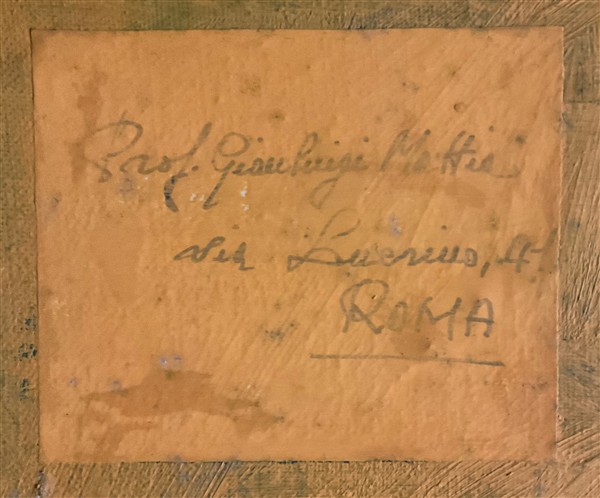 Prof. Gianluigi Mattei
via Lucrino, 41
ROMA